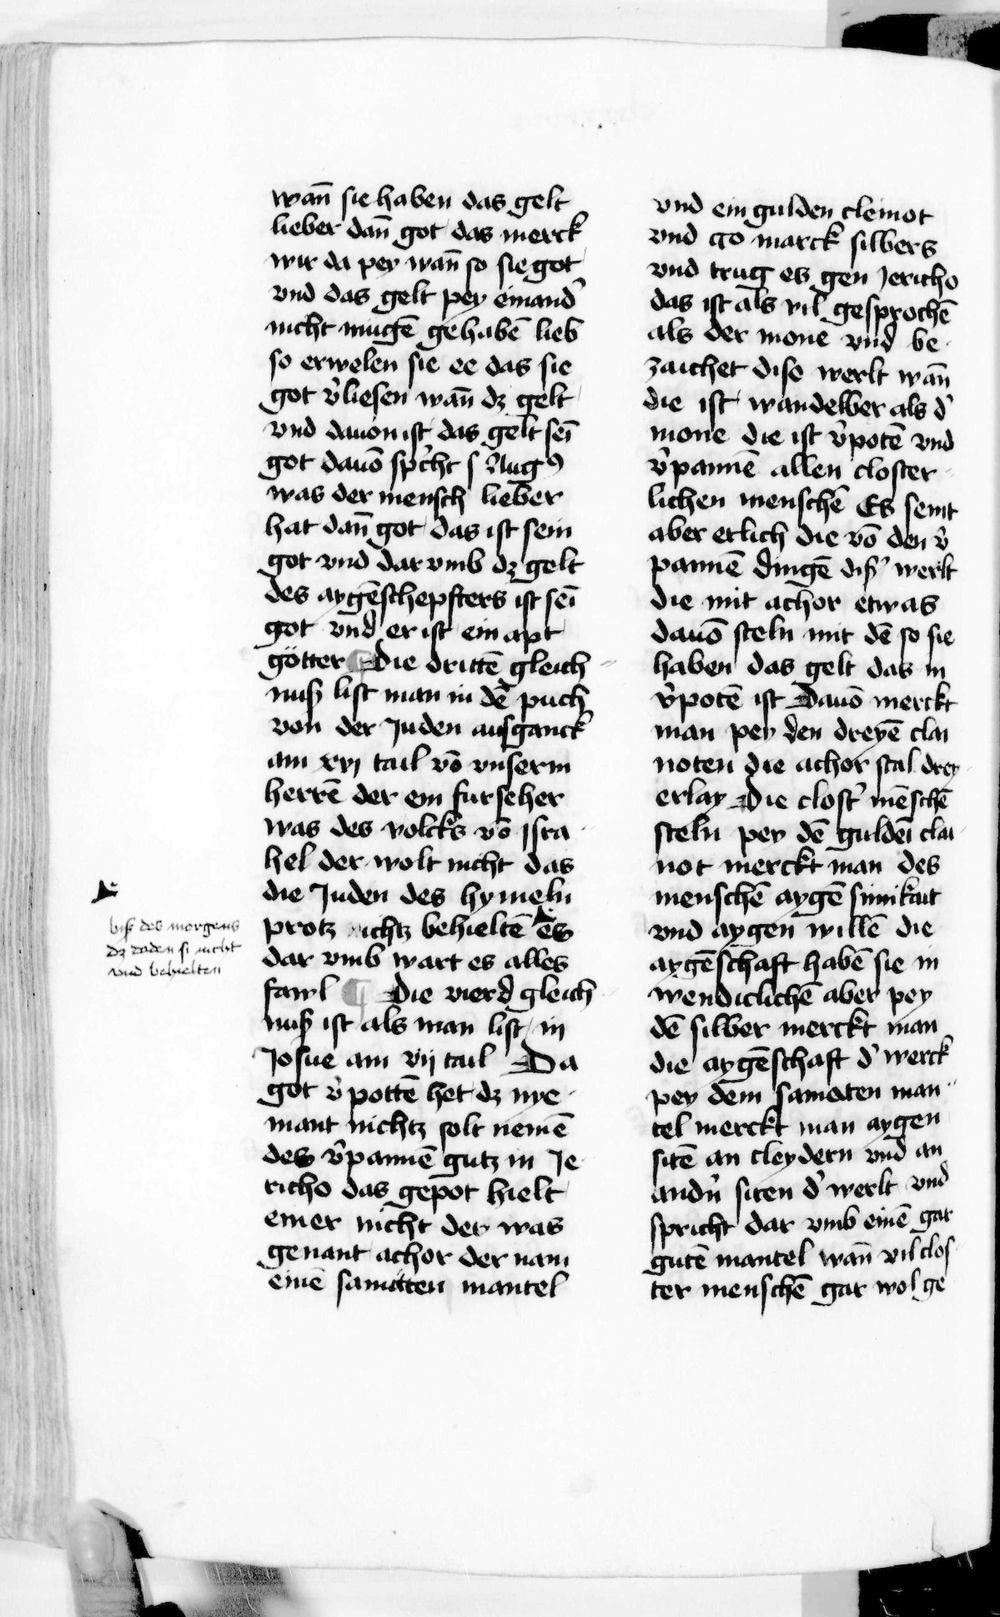 wan̄ sie haben das gelt
lieber dan̄ got das merck
wir da pey wan̄ so sie got
vnd das gelt pey einand᷑
nicht mugē gehabē lieb
so erwelen sie ee das sie
got v᷑liesen wan̄ dz gelt
vnd dauon ist das gelt seī
got dauō sp᷑cht s Augꝰ
was der mensch lieber
hat dan̄ got das ist sein
got vnd dar vmb dz gelt
des aygēschepfters ist seī
got vnd er ist ein apt
götter ¶ Die drittē gleich
nuß list man in dē puch
von der Juden ausganck
am xvj tail vō vnserm
herrē der ein furseher
was des volcks vō Isra
hel der wolt nicht das
die Juden des hymeln
protz ichtz behieltē es
dar vmb wart es alles
fawl ¶ Die vierd gleich
nuß ist als man list in
Josue am vij tail Da
got v᷑pottē het dz nye
mant nichtz solt nemē
des v᷑pannē gutz in Je
richo das gepot hielt
einer nicht der was
genant achor der nam
einē samatten mantel
biß des morgens
dz daden si nicht
vnd behielten
vnd ein gulden cleinot
vnd cc marck silbers
vnd trug es gen Jericho
das ist als vil gesprochē
als der mone vnd be
zaichet dise werlt wan̄
die ist wandelber als d᷑
mone die ist v᷑potē vnd
v᷑pannē allen closter
lichen menschē Es seint
aber etlich die vō den v᷑
pannē dingē diß᷑ werlt
die mit achor etwas
dauō steln mit dē so sie
haben das gelt das in
v᷑potē ist Dauō merckt
man pey den dreyē clai
noten die achor stal drey
erlay Die clost᷑ mēschē
steln pey dē guldeī clai
not merckt man des
menschē aygē sinnikait
vnd aygen willē die
aygēschaft habē sie in
wendiclichē aber pey
dē silber merckt man
die aygēschaft d᷑ werck
pey dem samaten man
tel merckt man aygen
sitē an cleydern vnd an
and᷑n siten d᷑ werlt vnd
spricht dar vmb einē gar
gutē mantel wan̄ vil clos
ter menschē gar wol ge